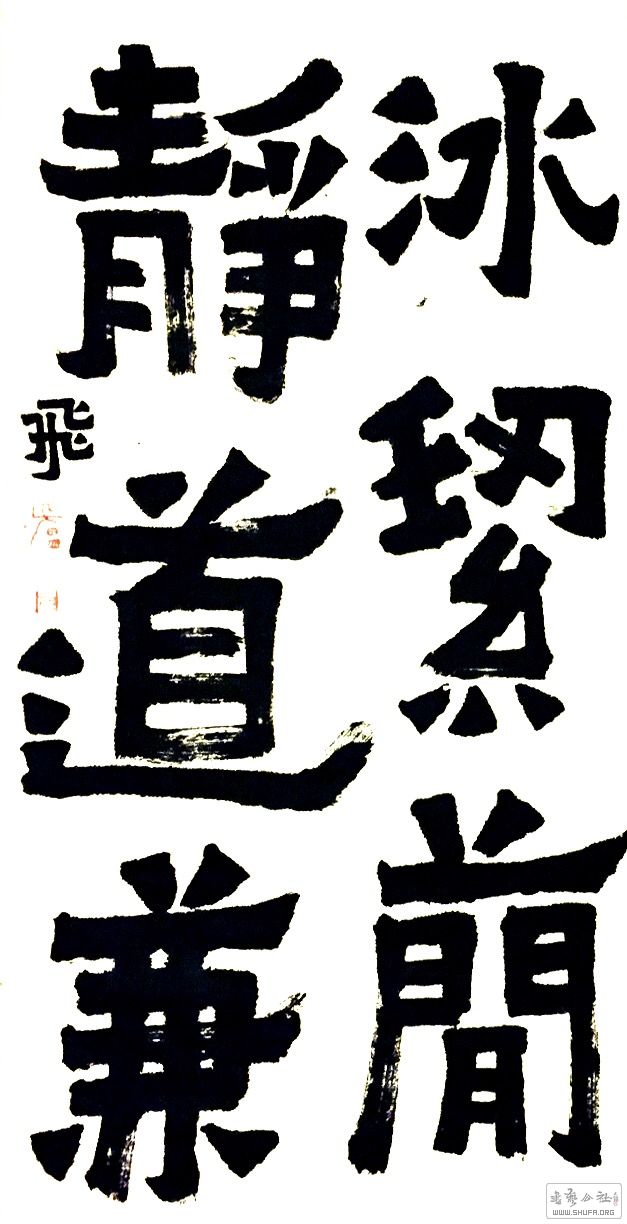 冰絜簡
靜道兼
飛
书艺公社
WWW.SHUFA.ORG